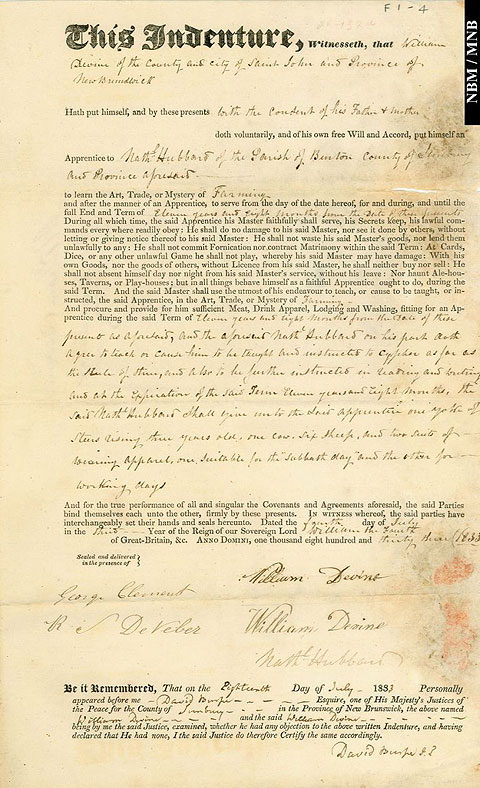 F1-4
NBM / MNB
This Indenture, Witnesseth, that William
Devine of the County and city of Saint John and Province of
New Brunswick
Hath put himself, and by these presents with the consent of his Father & Mother
doth voluntarily, and of his own free Will and Accord, put himself an
Apprentice to Nathl Hubbard of the Parish of Burton County of Sunbury
and Province aforesaid
to learn the Art, Trade, or Mystery of Farming
and after the manner of an Apprentice, to serve from the day of the date hereof, for and during, and until the
full End and Term of Eleven years and Eight Months from the date of these presents
During all which time, the said Apprentice his Master faithfully shall serve, his Secrets keep, his lawful com-
mands every where readily obey: He shall do no damage to his said Master, nor see it done by others, without
letting or giving notice thereof to his said Master: He shall not waste his said Master's goods, nor lend them
unlawfully to any: He shall not commit Fornication nor contract Matrimony within the said Term: At Cards,
Dice, or any other unlawful Game he shall not play, whereby his said Master may have damage: With his
own Goods, nor the goods of others, without Licence from his said Master, he shall neither buy nor sell: He
shall not absent himself day nor night from his said Master's Service, without his leave: Nor hunt Ale-hou-
ses, Taverns, or Play-houses; but in all things behave himself as a faithful Apprentice ought to do, during the
said Term. And the said Master shall use the utmost of his endeavour to teach, or cause to be taught, or in-
structed, the said Apprentice, in the Art, Trade, or Mystery of Farming
And procure and provide for him sufficient Meat, Drink Apparel, Lodging and Washing, fitting for an Ap-
prentice during the said Term of Eleven years and eight Months from the date of these
presents as aforesaid, and the aforesaid Nathl Hubbard on his part doth
agree to teach or cause him to be taught and instructed to Cypher as far as
the Rule of three, and also to be further instructed in reading and writing
and at the Expiration of the said Term Eleven years and Eight Months, the
said Nathl Hubbard Shall give unto the said apprentice one yoke of
Steers rising three years old, one cow, six sheep, and two suits of
wearing apparel, one suitable for the Sabbath day and the other for
working days
And for the true performance of all and singular the Covenants and Agreements aforesaid, the said Parties
bind themselves each unto the other, firmly by these presents. In witness whereof, the said parties have
interchangeably set their hands and seals hereunto. Dated the fourth day of July
in the third Year of the Reign of our Sovereign Lord William the Fourth
of Great-Britain, &c. Anno Domini, one thousand eight hundred and thirty three (1833
Sealed and delivered
in the presence of
William Devine
George Clement
DeVeber William Devine
Nathl Hubbard
Be it Remembered, That on the Eighteenth Day of July 1833 Personally
appeared before me David Burpe Esquire, one of His Majesty's Justices of
the Peace for the County of Sunbury in the Province of New Brunswick, the above named
William Devine and the said William Devine
being by me the said Justice, examined, whether he had any objection to the above written Indenture, and having
declared that He had none, I the said Justice do therefore Certify the same accordingly.
David Burpe J.P